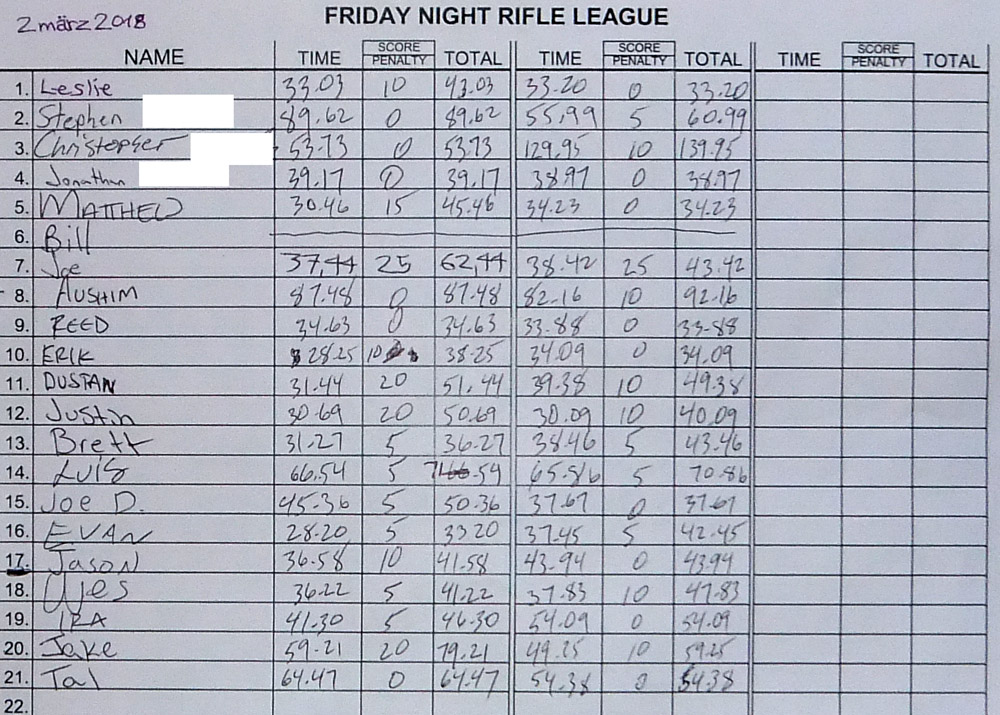 2 märz 2018
FRIDAY NIGHT RIFLE LEAGUE
NAME TIME SCORE PENALTY TOTAL TIME SCORE PENALTY TOTAL TIME SCORE PENALTY TOTAL
1. Leslie 33.03 10 43.03 33.20 0 33.20
2. Stephen 89.62 0 89.62 55.99 5 60.99
3. Christopher 53.73 0 53.73 129.95 10 139.95
4. Jonathan 39.17 0 39.17 38.97 0 38.97
5. MATTHEW 30.46 15 45.46 34.23 0 34.23
6. Bill
7. Joe 37,44 25 62,44 38.42 25 43.42
8. AUSHIM 87.48 0 87.48 82.16 10 92.16
9. REED 34.63 0 34.63 33.88 0 33.88
10. ERIK 28.25 10 38.25 34.09 0 34.09
11. DUSTAN 31.44 20 51.44 39.38 10 49.38
12. Justin 30.69 20 50.69 30.09 10 40.09
13. Brett 31.27 5 36.27 38.46 5 43.46
14. LUIS 66.54 5 .54 65.86 5 70.86
15. Joe D. 45.36 5 50.36 37.67 0 37.67
16. EVAN 28.20 5 33 20 37.45 5 42.45
17. JASON 36.58 10 41.58 43.94 0 43.94
18. 36.22 5 41.22 37.83 10 47.83
19. IRA 41.30 5 46.30 54.09 0 54.09
20. Jake 59.21 20 79.21 49.25 10 59.25
21. Tal 64.47 0 64.47 54.38 0 54.38
22.